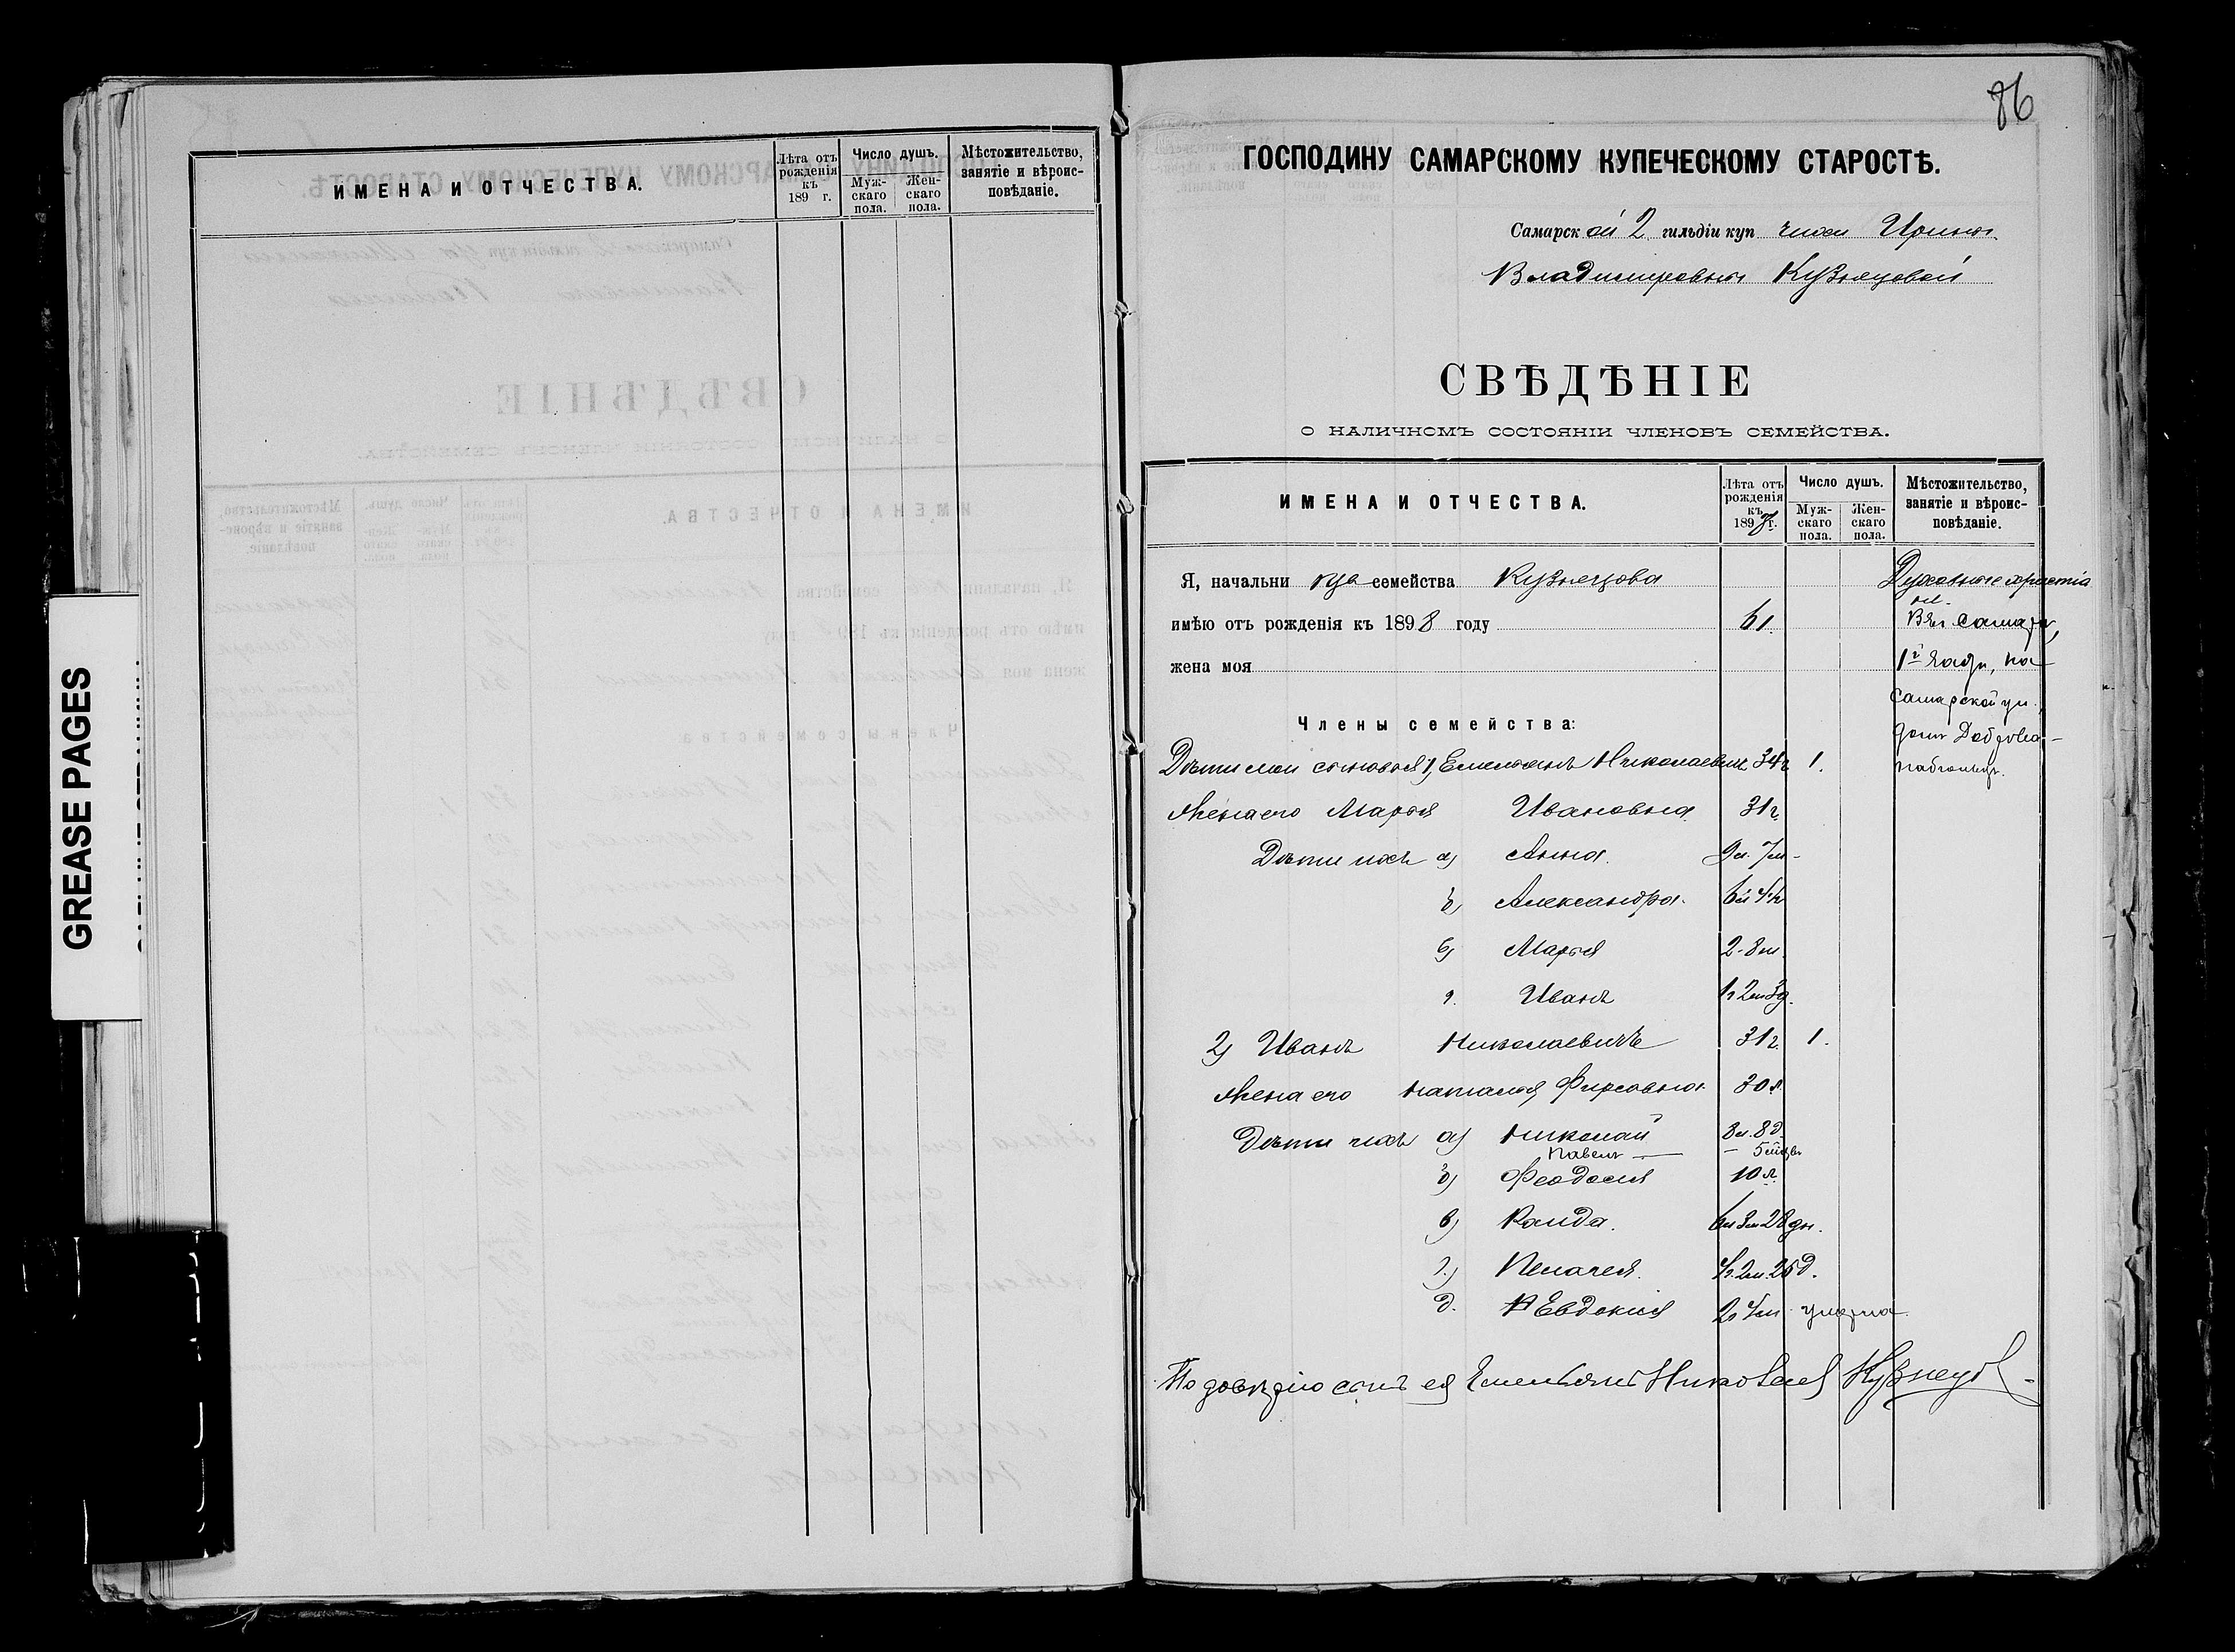 GREASE PAGES
ИМЕНА И ОТЧЕСТВА.
Лѣта отъ рожденія къ 189 г.
Число душъ.
Мужскаго пола.
Женскаго пола.
Мѣстожительство, занятіе и вѣроисповѣданіе.
86
ГОСПОДИНУ САМАРСКОМУ КУПЕЧЕСКОМУ СТАРОСТѢ.
Самарской 2 гильдіи купчихи Ирины
Владимировны Кузнецовой
СВѢДѢНІЕ
О НАЛИЧНОМЪ СОСТОЯНІИ ЧЛЕНОВЪ СЕМЕЙСТВА.
ИМЕНА И ОТЧЕСТВА.
Лѣта отъ рожденія къ 1898 г.
Число душъ.
Мужскаго пола.
Женскаго пола.
Мѣстожительство, занятіе и вѣроисповѣданіе.
Я, начальница семейства Кузнецова
имѣю отъ рожденія къ 1898 году 61.
жена моя
Духовные христіане.
Въ г. Самарѣ,
1й части, на
Самарской ул.,
домъ
Члены семейства:
Дѣти мои сыновья 1) Емельянъ Николаевичъ 34г. 1.
Жена его Марья Ивановна 31г.
Дѣти ихъ а) Анна. 9л. 7м.
б) Александра. 6л 4м
в) Марья 2-8м.
г. Иванъ 1г 2м 3д.
2) Иванъ Николаевичъ 31г. 1.
Жена его Наталья Фирсовна 30л.
Дѣти ихъ а) Николай 8л. 8д.
Павелъ —
б) Феодосия 10л.
в) Раида. 6л 3м 28дн.
г.) Пелагея. 4г. 2м. 25д.
д. Евдокия 2г 4м умерла.
По довѣрію сынъ ея Емельянъ Николаев Кузнецов